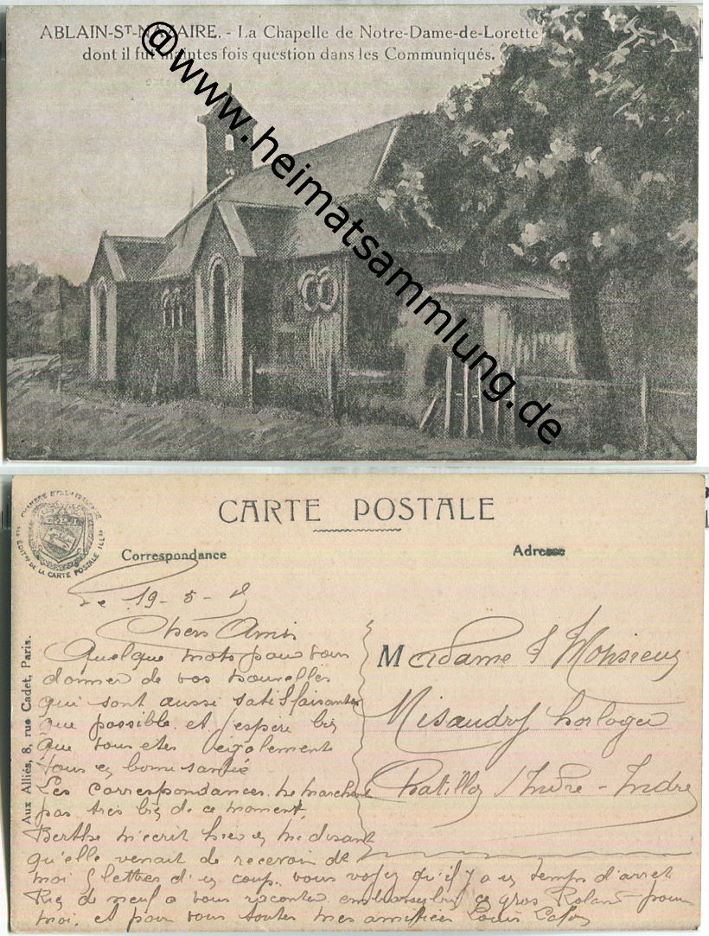 ABLAIN-ST-NAZAIRE. - La Chapelle de Notre-Dame-de-Lorette
dont il fut maintes fois question dans les Communiqués.
@www.heimatsammlung.de
CARTE POSTALE
Correspondance
Adresse
DE LA CARTE POSTALE ILLrée
Aux Alliés, 8, rue Cadet, Paris.
Le 19-5-
Chers Amis
Quelque mots pour vous
donner de vos nouvelles
qui sont aussi satisfaisantes
que possible et j'espère bis
que vous etes également
tous en bonne santée
Les correspondances ne marchent
pas très bis de ce moment.
Berthe m'ecrit hier en me disant
qu'elle venait de recevoir de
moi 5 lettres d'un coup. vous voyez qu'il y a un temps d'arret
Rien de neuf a vous raconter embrassez bis ce gros Roland pour
moi. et pour vous toutes mes amitiées Louis
Madame & Monsieur
Misaudry horloger
Chatillon s/ Indre - Indre